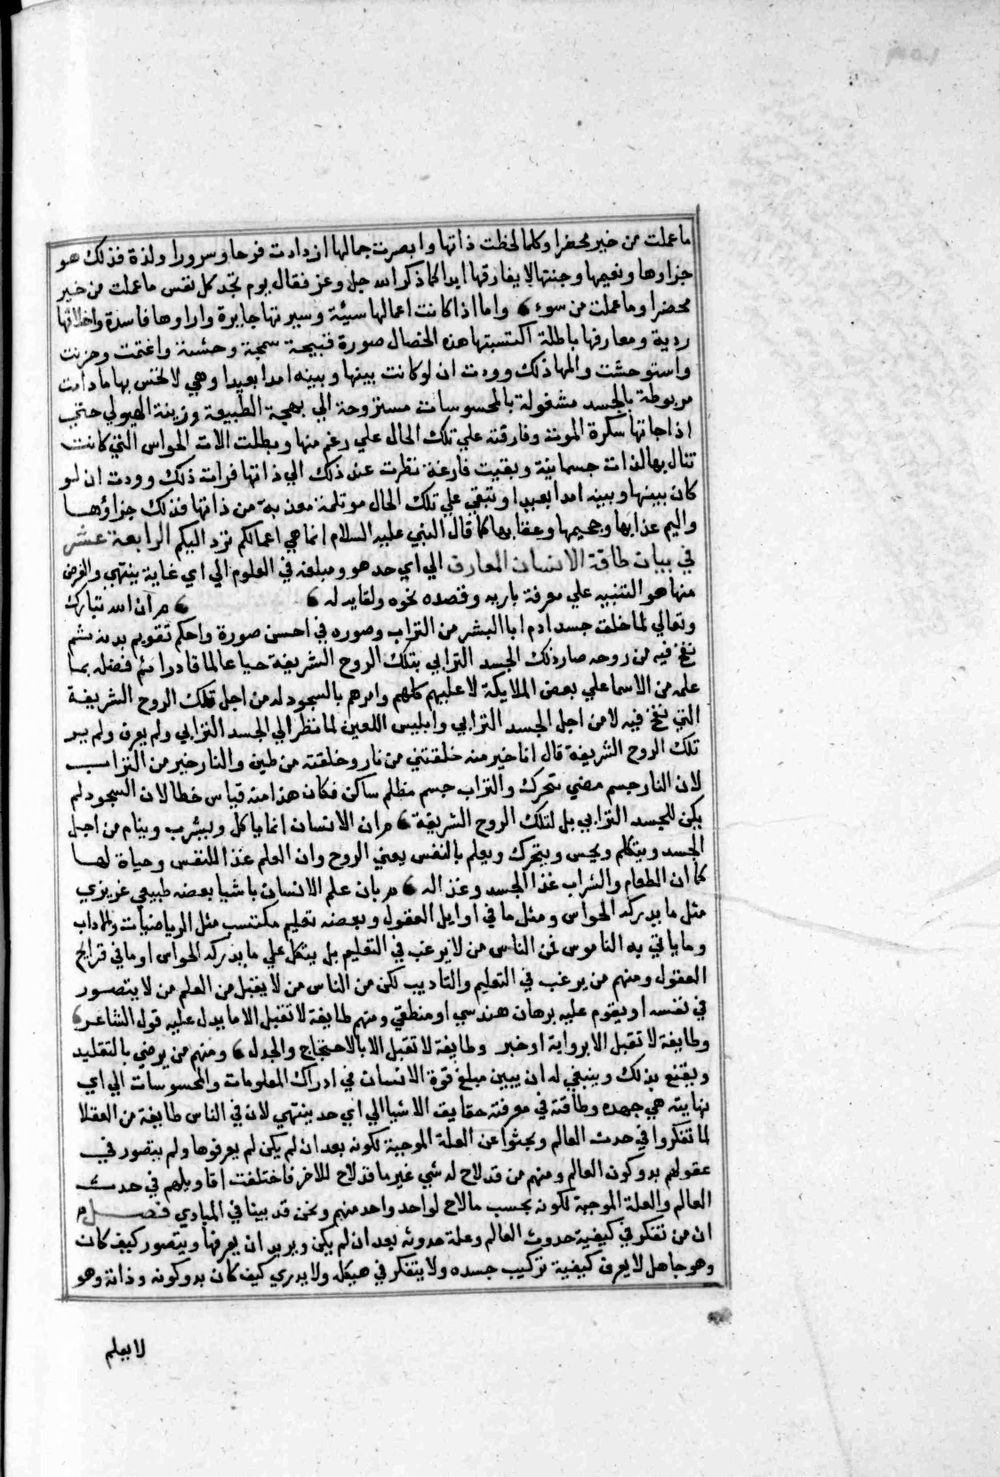 ما عملت من خير محضرا وكلما لحظت ذاتها وابصرت جمالها ازدادت فرحا وسرورا ولذة فذلك هو
جزاوها ونعيمها وجنتها لا يفارقها ابدا كما ذكر الله جل وعز فقال يوم تجد كل نفس ما عملت من خير
محضرا وما عملت من سوء واما اذا كانت اعمالها سيئة وسيرتها جايرة واراوها فاسدة واخلاقها
ردية ومعارفها باطلة اكتسبتها هذه الخصال صورة قبيحة سمجة وحشة واغتمت وحزنت
واستوحشت والمها ذلك وودت ان لو كانت بينها وبينه امدا بعيدا وهي لا تحس بها ما دامت
مربوطة بالجسد مشغولة بالمحسوسات مستروحة الي بهجة الطبيعة وزينة الهيولي حتي
اذا جاتها سكرة الموت وفارقته علي تلك الحال علي رغم منها وبطلت الات الحواس التي كانت
تنال بها لذات جسمانية وبقيت فارغة نظرت عند ذلك الي ذاتها فرات ذلك وودت ان لو
كان بينها وبينه امدا بعيدا وتبقي علي تلك الحال موتلمة معذبة من ذاتها فذلك جزاؤها
واليم عذابها وجحيمها وعقابها كما قال النبي عليه السلام انما هي اعمالكم ترد اليكم الرابعة عشر
في بيان طاقة الانسان المعارف الي اي حد هو ومبلغه في العلوم الي اي غاية ينتهي والغرض
منها هو التنبيه علي معرفة باريه وقصده نحوه ولقايه له م ان الله تبارك
وتعالي لما خلق جسد ادم ابا البشر من التراب وصوره في احسن صورة واحكم تقويم بدنه ثم
نفخ فيه من روحه صار ذلك الجسد الترابي بتلك الروح الشريفة حيا عالما قادرا ثم فضله بما
علمه من الاسما علي بعض الملايكة لا عليهم كلهم وامرهم بالسجود له من اجل تلك الروح الشريفة
التي نفخ فيه لا من اجل الجسد الترابي وابليس اللعين لما نظر الي الجسد الترابي ولم يعرف ولم ير
تلك الروح الشريفة قال انا خير منه خلقتني من نار وخلقته من طين والنار خير من التراب
لان النار جسم مضي متحرك والتراب جسم مظلم ساكن فكان هذا منه قياس خطا لان السجود لم
يكن للجسد الترابي بل لتلك الروح الشريفة م ان الانسان انما ياكل ويشرب وينام من اجل
الجسد ويتكلم ويحس ويتحرك ويعلم بالنفس يعني الروح وان العلم غذا للنفس وحياة لها
كما ان الطعام والشراب غذا الجسد وغذا له م بان علم الانسان باشيا بعضه طبيعي غريزي
مثل ما يدركه الحواس ومثل ما في اوايل العقول وبعضه تعليم مكتسب مثل الرياضيات والاداب
وما ياتي به الناموس فمن الناس من لا يرغب في التعليم بل يتكل علي ما يدركه الحواس او ما في قرايح
العقول ومنهم من يرغب في التعليم والتاديب لكن من الناس من لا يقبل من العلم من لا يتصور
في نفسه او يقوم عليه برهان هندسي او منطقي ومنهم طايفة لا تقبل الا ما يدل عليه قول الشاعر
وطايفة لا تقبل الا برواية او خبر وطايفة لا تقبل الا بالاحتجاج والجدل ومنهم من يرضي بالتقليد
ويقنع بذلك وينبغي له ان يبين مبلغ قوة الانسان في ادراك المعلومات والمحسوسات الي اي
نهايته هي جهده وطاقته في معرفة حقايق الاشيا الي اي حد ينتهي لان في الناس طايفة من العقلا
لما تفكروا في حدث العالم وبحثوا عن العلة الموجبة لكونه بعد ان لم يكن لم يعرفوها ولم يتصور في
عقولهم بدو كون العالم ومنهم من قد لاح له شي غير ما قد لاح للاخر فاختلفت اقاويلهم في حدث
العالم والعلة الموجبة لكونه بحسب ما لاح لواحد واحد منهم ونحن قد بينا في المبادي فصل م
ان من تفكر في كيفية حدوث العالم وعلة حدوثه بعد ان لم يكن ويريد ان يعرفها ويتصور كيف كان
وهو جاهل لا يعرف كيفية تركيب جسده ولا يتفكر في هيكله ولا يدري كيف كان بدو كونه وذاته وهو
لا يعلم